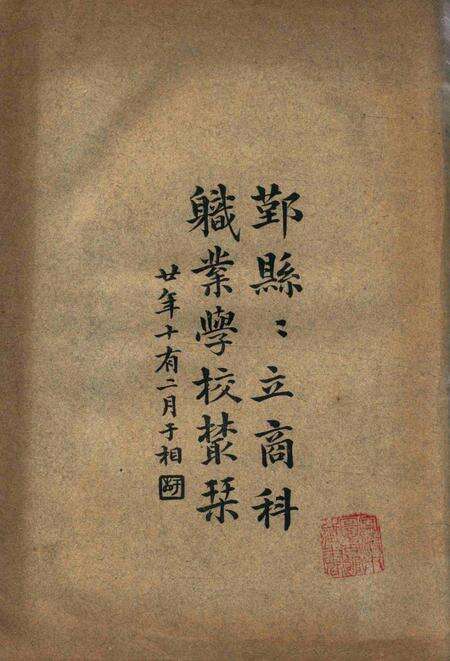 鄞縣〻立商科
職業學校叢栞
廿年十有二月于相